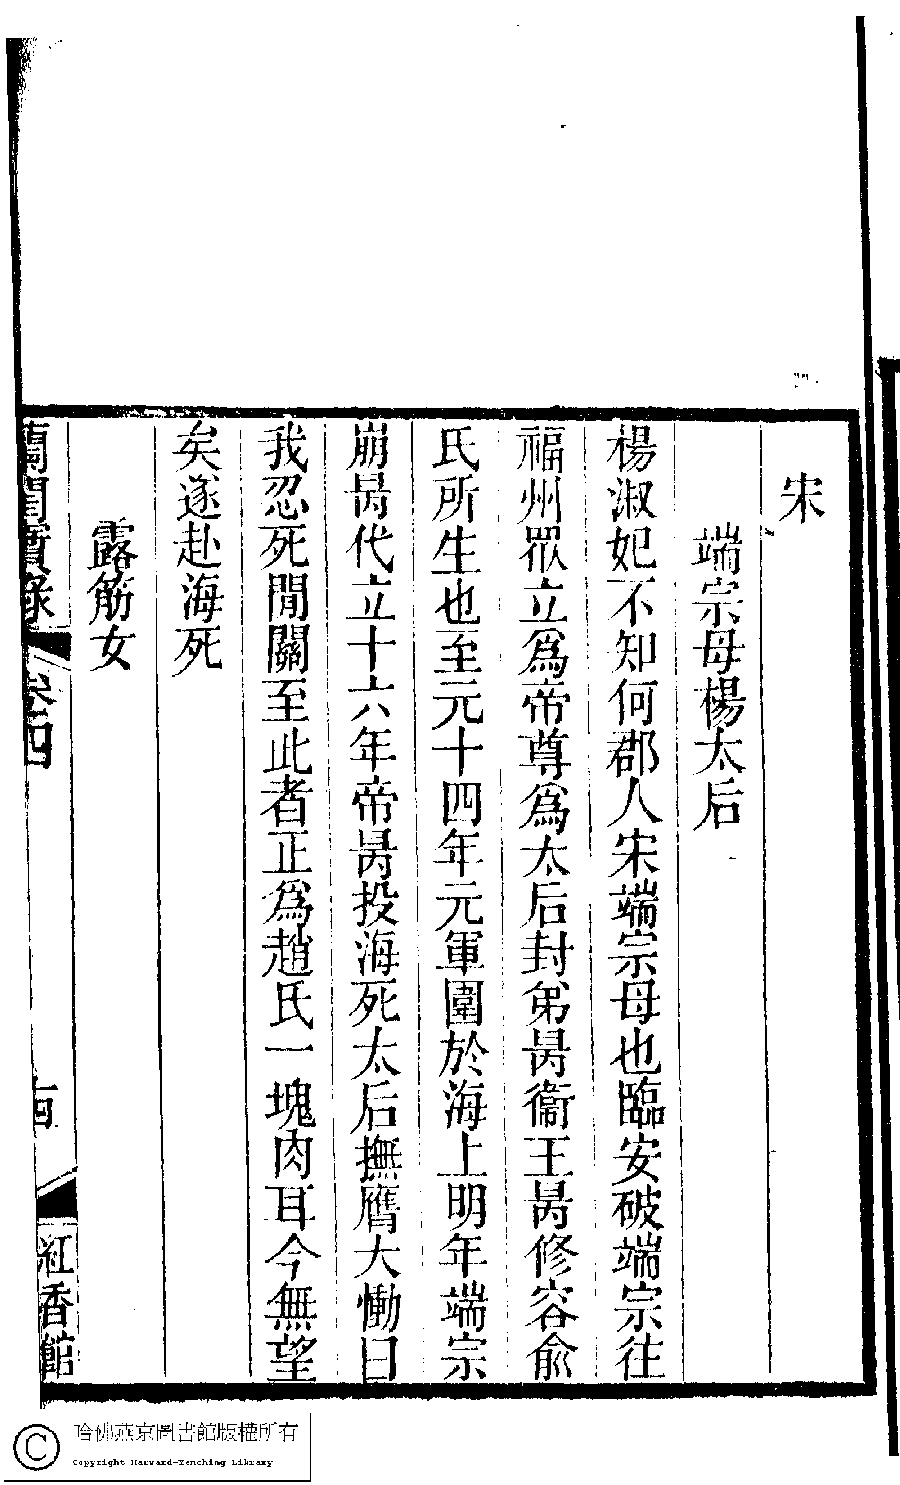 宋
端宗母楊太后
楊淑妃不知何郡人宋端宗母也臨安破端宗往
福州眾立爲帝尊爲太后封弟昺衞王昺修容俞
氏所生也至元十四年元軍圍於海上明年端宗
崩昺代立十六年帝昺投海死太后撫膺大慟曰
我忍死閒關至此者正爲趙氏一塊肉耳今無望
矣遂赴海死
露筋女
蘭閨寶錄 卷四 十四 紅香館
哈佛燕京圖書館版權所有
Copyright Harvard-Yenching Library